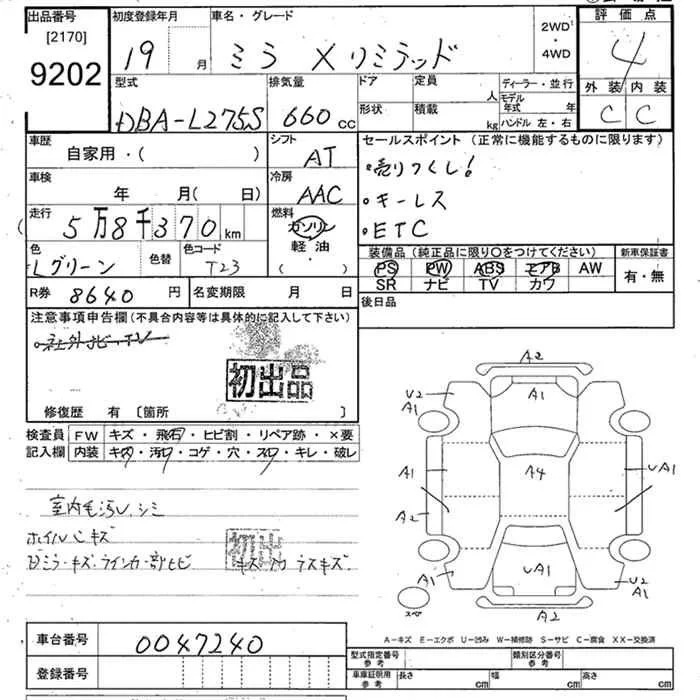 出品番号 初度登録年月 車名・グレード 2WD・4WD 評価点
[2170]
9202 19 月 ミラ Xリミテッド 4
型式 排気量 ドア 定員 人 ディーラー・並行 外装 内装
DBA-L275S 660 cc 形状 積載 kg モデル年式 年 C C
ハンドル 左・右
車歴 シフト セールスポイント (正常に機能するものに限ります)
自家用・( ) AT ・売りつくし!
車検 冷房
年 月( 日) AAC ・キーレス
走行 燃料
5万8千370km ガソリン ・ETC
軽油・( )
色 色替 色コード 装備品 (純正品に限り○をつけてください) 新車保証書
Lグリーン T23 PS PW ABS エアB AW 有・無
SR ナビ TV カワ
R券 8640円 名変期限 月 日 後日品
注意事項申告欄 (不具合内容等は具体的に記入して下さい)
・社外ナビ・TV
初出品
修復歴 有 [箇所 ]
検査員 FW キズ・飛石・ヒビ割・リペア跡・×要
記入欄 内装 キズ・汚レ・コゲ・穴・スレ・キレ・破レ
室内毛汚レ、シミ
ホイルハキズ
初出
A2
U2
A1
A1
A1
A4
UA1
A2
A1
UA1
U2
A1
A2
スペア
A-キズ E-エクボ U-凹み W-補修跡 S-サビ C-腐食 XX-交換済
車台番号 0047240
型式指定番号 参考 類別区分番号 参考
登録番号
車庫証明用 参考 長さ cm 幅 cm 高さ cm